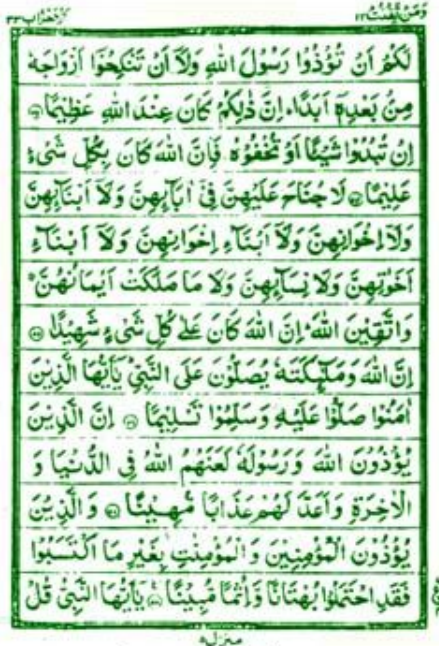 وَمَنْ يَّقْنُتْ ٢٢
الاحزاب ٣٣
لَكُمْ اَنْ تُؤْذُوْا رَسُوْلَ اللهِ وَلَآ اَنْ تَنْكِحُوْٓا اَزْوَاجَهٗ
مِنْۢ بَعْدِهٖٓ اَبَدًا ؕ اِنَّ ذٰلِكُمْ كَانَ عِنْدَ اللهِ عَظِيْمًا ۝
اِنْ تُبْدُوْا شَيْـًٔا اَوْ تُخْفُوْهُ فَاِنَّ اللهَ كَانَ بِكُلِّ شَيْءٍ
عَلِيْمًا ۝ لَا جُنَاحَ عَلَيْهِنَّ فِيْٓ اٰبَآئِهِنَّ وَلَآ اَبْنَآئِهِنَّ
وَلَآ اِخْوَانِهِنَّ وَلَآ اَبْنَآءِ اِخْوَانِهِنَّ وَلَآ اَبْنَآءِ
اَخَوٰتِهِنَّ وَلَا نِسَآئِهِنَّ وَلَا مَا مَلَكَتْ اَيْمَانُهُنَّ ۚ
وَاتَّقِيْنَ اللهَ ؕ اِنَّ اللهَ كَانَ عَلٰى كُلِّ شَيْءٍ شَهِيْدًا ۝
اِنَّ اللهَ وَمَلٰٓئِكَتَهٗ يُصَلُّوْنَ عَلَى النَّبِيِّ ؕ يٰٓاَيُّهَا الَّذِيْنَ
اٰمَنُوْا صَلُّوْا عَلَيْهِ وَسَلِّمُوْا تَسْلِيْمًا ۝ اِنَّ الَّذِيْنَ
يُؤْذُوْنَ اللهَ وَرَسُوْلَهٗ لَعَنَهُمُ اللهُ فِي الدُّنْيَا وَ
الْاٰخِرَةِ وَاَعَدَّ لَهُمْ عَذَابًا مُّهِيْنًا ۝ وَالَّذِيْنَ
يُؤْذُوْنَ الْمُؤْمِنِيْنَ وَالْمُؤْمِنٰتِ بِغَيْرِ مَا اكْتَسَبُوْا
فَقَدِ احْتَمَلُوْا بُهْتَانًا وَّاِثْمًا مُّبِيْنًا ۝ يٰٓاَيُّهَا النَّبِيُّ قُلْ
منزل ٥